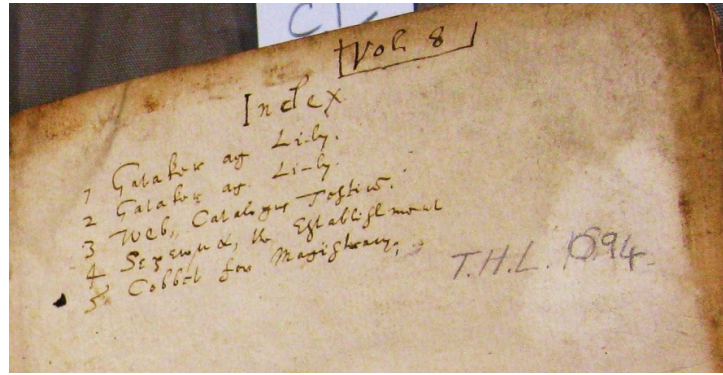 CL
Vol. 8
Index
1 Gataker ag Lily.
2 Gataker ag. Lily.
3 Web, Catalogus Testiu.
4 the Establishment
5 Cobbet for Magistracy.
T.H.L. 1694